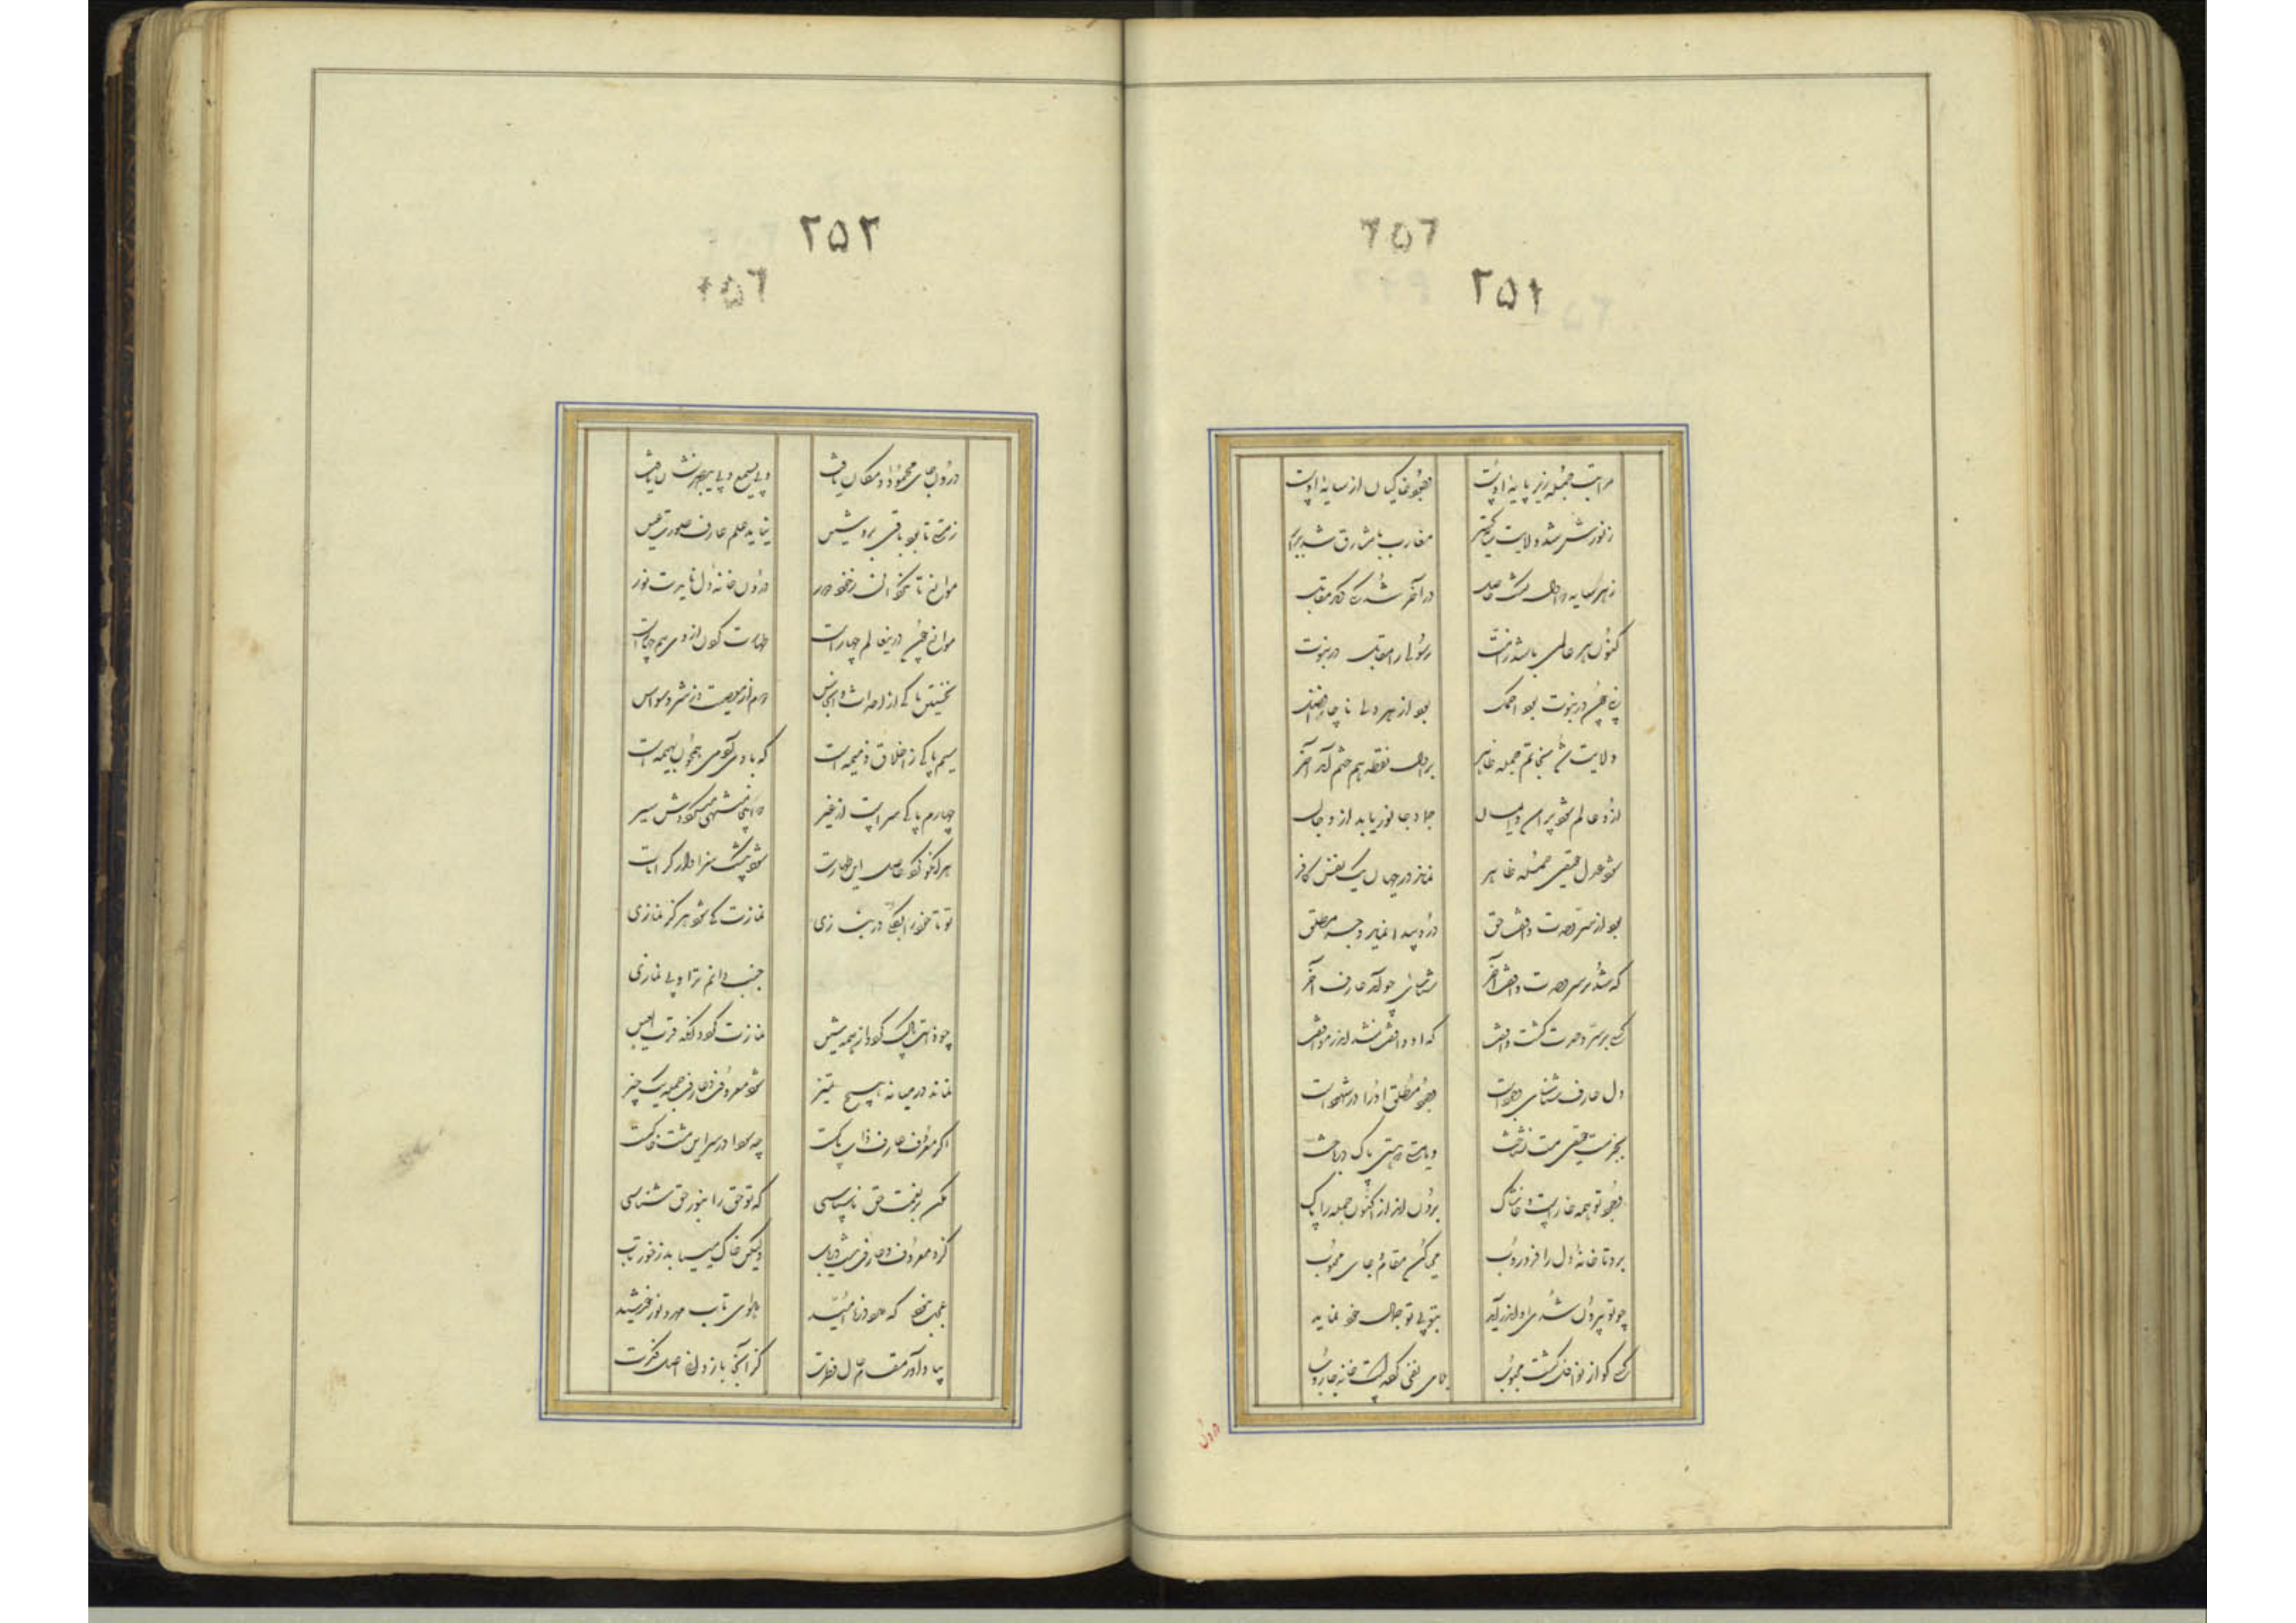 ۲۵۱
مراتب جمله زیر پایه اوست وجود خاکیان از سایه اوست
ز نورش شد ولایت سایه گستر مغارب با مشارق شد برابر
ز هر سایه که اول گشت حاصل در آخر شد یکی دیگر مقابل
کنون هر عالمی باشد ز امت رسولی را مقابل در نبوت
نبی چون در نبوت بود اکمل بود از هر ولی ناچار افضل
ولایت شد بخاتم جمله ظاهر بر اول نقطه هم ختم آمد آخر
ازو عالم شود پر امن و ایمان جماد و جانور یابد ازو جان
شود عدل حقیقی جمله ظاهر نماند در جهان یک نفس کافر
بود از سر وحدت واقف حق درو پیدا نماید وجه مطلق
که شد بر سر وحدت واقف آخر شناسای چه آمد عارف آخر
کسی بر سر وحدت گشت واقف که او واقف نشد اندر مواقف
دل عارف شناسای وجود است وجود مطلق او را در شهود است
بجز هست حقیقی هست نشناخت و یا هستی که هستی پاک درباخت
وجود تو همه خار است و خاشاک برون انداز اکنون جمله را پاک
برو تا خانه دل را فرو روب مهیا کن مقام و جای محبوب
چو تو بیرون شدی او اندر آید بتو بی تو جمال خود نماید
کسی کو از نوافل گشت محبوب بلای نفی کرد او خانه جاروب
درون
۲۵۲
درون جای محمود او مکان یافت و بی یسمع و بی یبصر نشان یافت
ز هستی تا بود باقی برو شین نیابد علم عارف صورت عین
موانع تا نگردانی ز خود دور درون خانه دل نایدت نور
موانع چون درین عالم چهار است طهارت کردن از وی هم چهار است
نخستین پاکی از احداث و انجاس دوم از معصیت وز شر وسواس
سیم پاکی ز اخلاق ذمیمه است که با وی آدمی همچون بهیمه است
چهارم پاکی سر است از غیر که اینجا منتهی میگرددش سیر
هر آنکو کرد حاصل این طهارات شود بیشک سزاوار کرامات
تو تا خود را بکلی در نبازی نمازت کی شود هرگز نمازی
جنب دانم ترا و بی نمازی
چو ذاتت پاک گردد از همه شین نمازت گردد آنگه قرت العین
نماند در میانه هیچ تمییز شود معروف و عارف جمله یک چیز
اگر معروف و عارف ذات پاکست چه سودا در سر این مشت خاکست
مکن بر نعمت حق ناسپاسی که تو حق را بنور حق شناسی
کزو معروف و عارف نیست دریاب ولیکن خاک مییابد ز خور تاب
عجب نبود که ذره دارد امید هوای تاب مهر و نور خورشید
بیاد آور مقام حال فطرت کز آنجا باز دانی اصل فکرت